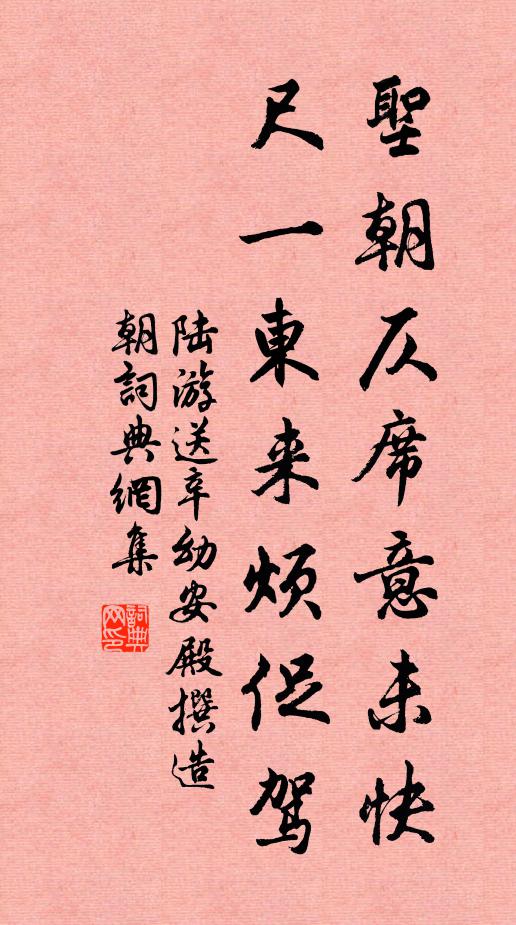 聖朝仄席意未快
尺一東来煩促駕
陆游送辛幼安殿撰造
朝詞典網集
詞典網印